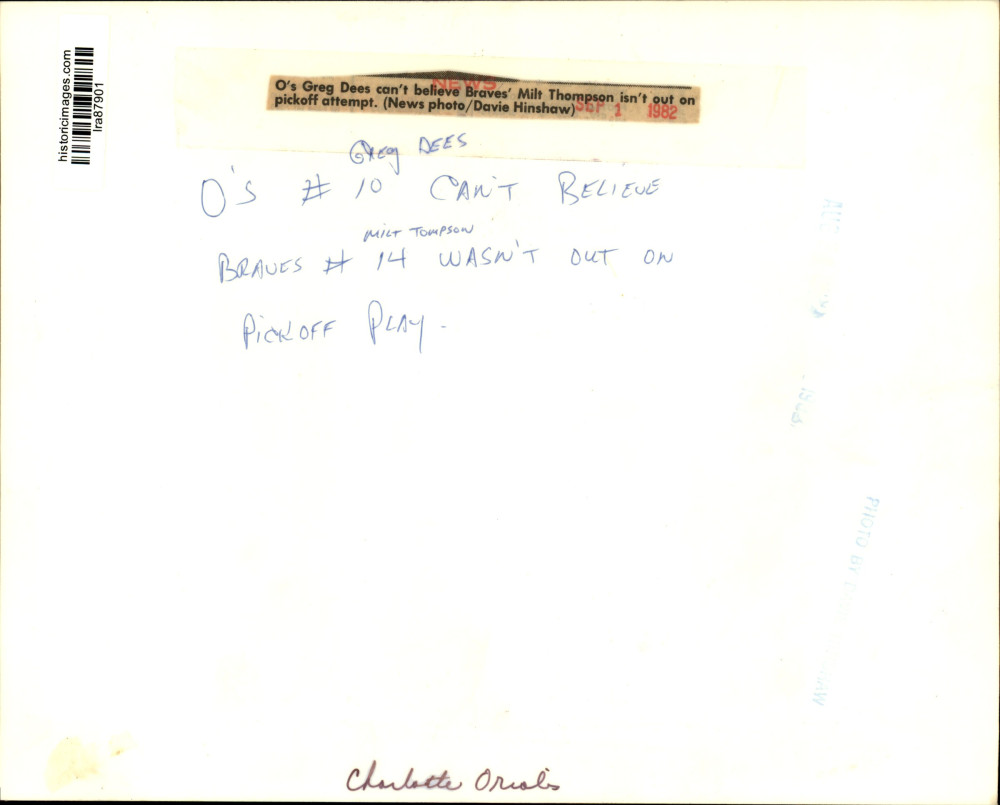 historicimages.com
lra87901
NEWS
O's Greg Dees can't believe Braves' Milt Thompson isn't out on
pickoff attempt. (News photo/Davie Hinshaw)
SEP 1 1982
Greg DEES
O'S # 10 CAN'T BELIEVE
MILT TOMPSON
BRAVES # 14 WASN'T OUT ON
PICKOFF PLAY.
AUG
PHOTO BY
Charlotte Orioles